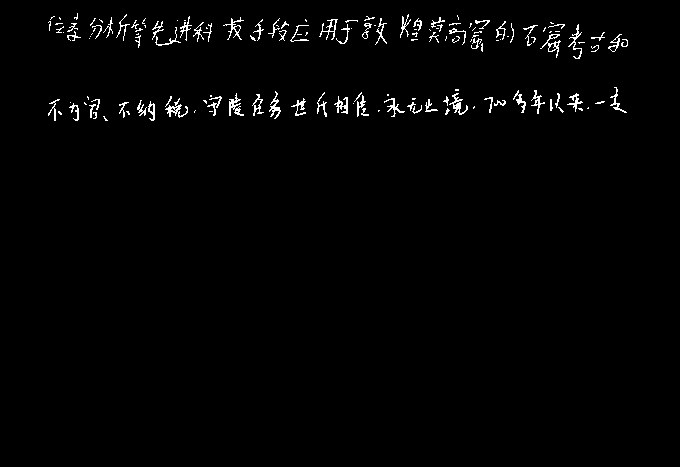 位素分析等先进科技手段应用于敦煌莫高窟的石窟考古和
不为官、不纳税.守陵任务世代相传.永无止境.700多年以来.一支